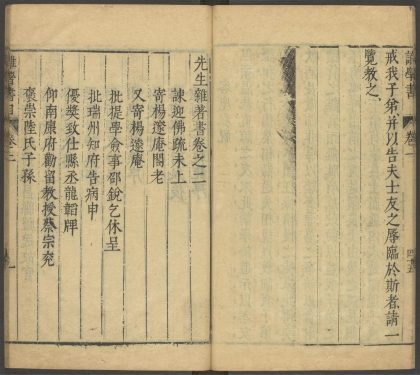 戒我子弟并以告夫士友之辱臨於斯者請一
覽教之
先生雜著書卷之二
諫迎佛疏未上
寄楊邃庵閣老
又寄楊邃庵
批提學僉事邵銳乞休呈
批瑞州知府告病申
優獎致仕縣丞龍韜牌
仰南康府勸留教授蔡宗兗
褒崇陸氏子孫